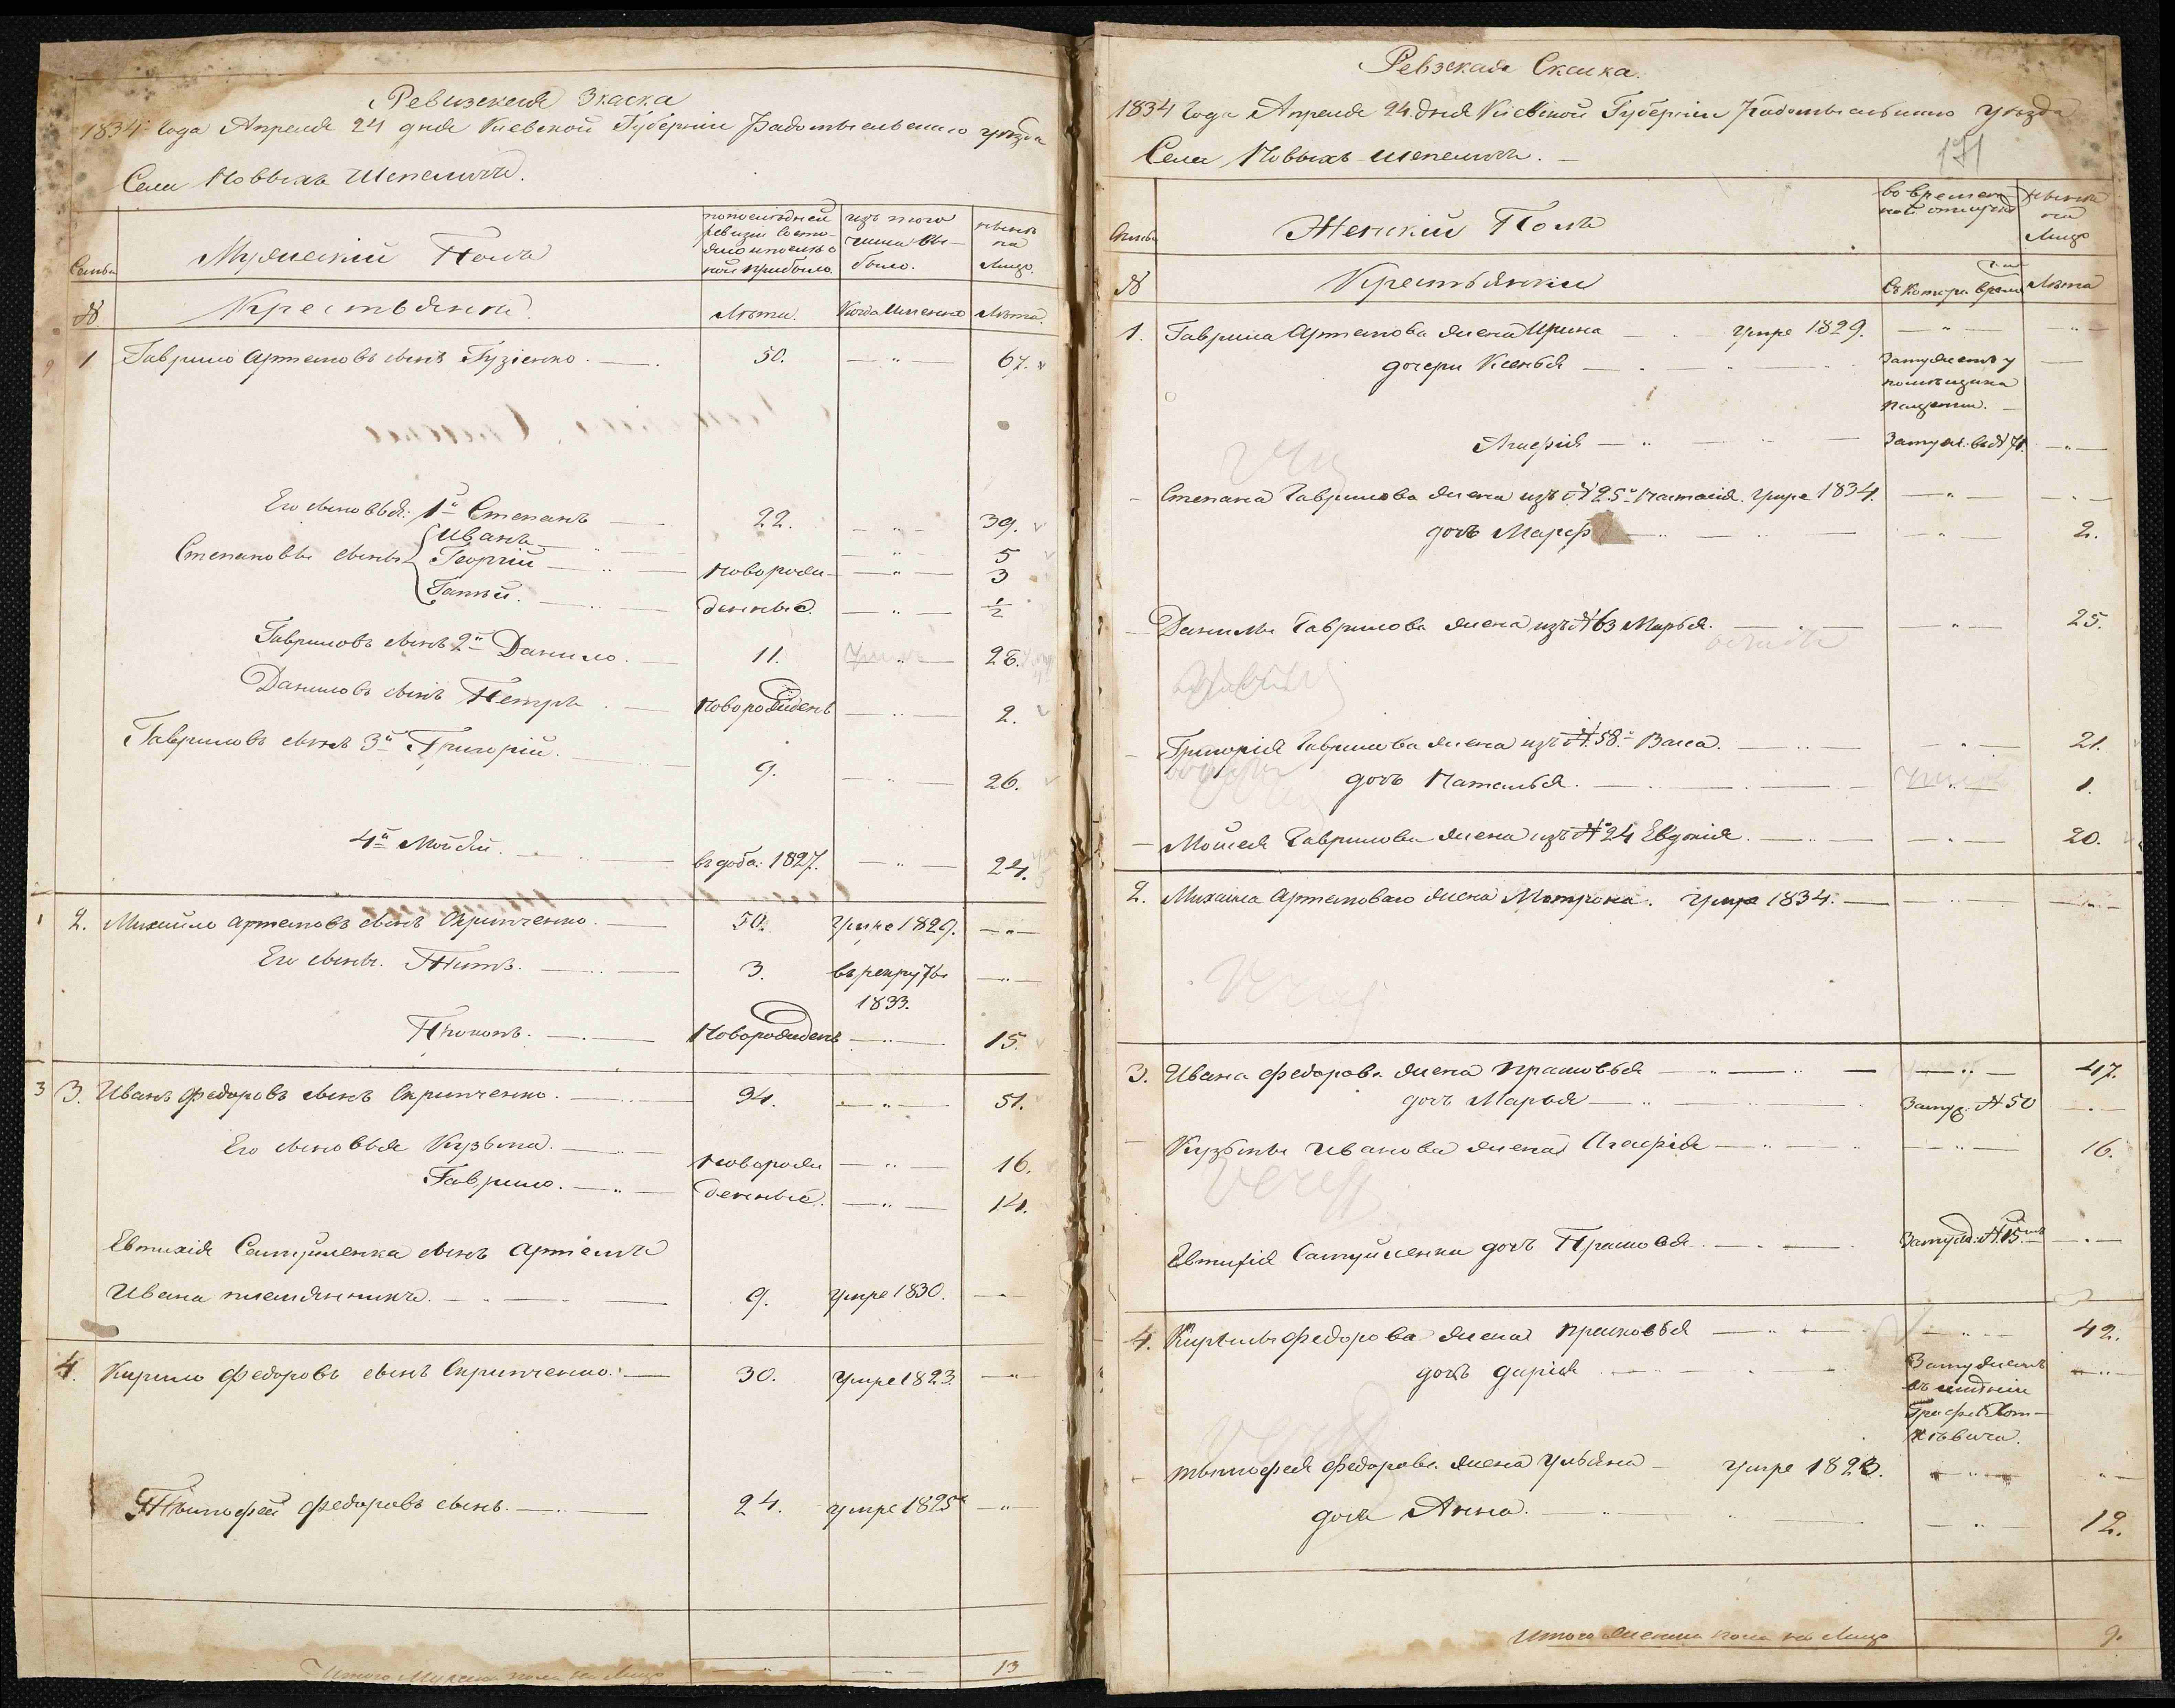 Ревизская Зкаска
1834 Года Апреля 24 дня Киевской Губернии Радомысльского уезда
Села Новыхъ Шепеличъ.
Семьи
Мужескій Полъ
попоследней
ревизіи состо-
яло ипосле о
ной прибыло.
изъ того
числа вы-
было.
ныне
на
лицо.
№
Крестьянъи
Лѣта.
Когда Именно
Лѣта.
1 Гаврило Артемовъ сынъ Гузіенко. 50. 67.
Его сыновья: 1й Степанъ 22. 39.
Иванъ 5
Степановы сыны Георгій Новорож- 3
денные. ½
Гавриловъ сынъ 2й Данило. 11. 28.
Даниловъ сынъ Петръ Новорожденъ 2.
Гавриловъ сынъ 3й Григорій. 9. 26.
4й Мойсѣй. 1827. 24.
2. Михайло Артемовъ сынъ Скрипченко. 50. Умре 1829.
Его сыны. Титъ. 3. въ рекруты
1833.
Прокопъ. Новорожденъ 15.
3. Иванъ Федоровъ сынъ Скрипченко. 34. 51.
Его сыновья Кузьма. Новорож 16.
Гаврило. денные. 14.
Евтихія Самуйленка сынъ Артемъ
Ивана племянникъ. 9. умре 1830.
4. Кирило Федоровъ сынъ Скрипченко. 30. Умре 1823.
Тымофей Федоровъ сынъ. 24. умре 1825
Итого Мужска пола на Лицо 13
Ревзская Скаска.
1834 Года Апреля 24. дня Кіевской Губерніи Радомысльского уѣзда
Села Новыхъ Шепеличъ.
171
Семьи
Женскій Полъ
во времен
ной отлучке
ныне
на
Лицо
№
Крестьянки
Съ котора время
Лѣта
1. Гаврила Артемова жена Ирина умре 1829.
дочери Ксенья Замужемъ у
помѣщика
Агафія Замуж. въ № 71.
Степана Гаврилова жена изъ № 25 Настасія. умре 1834.
дочь Марф 2.
Данилы Гаврилова жена изъ № 63 Марья. 25.
Григорія Гаврилова жена изъ № 58. Васса. 21.
дочь Наталья. 1.
Мойсея Гаврилова жена изъ № 24 Евдокія. 20.
2. Михаила Артемоваго жена Матрона. умре 1834.
3. Ивана Федорова жена Прасковья 47.
дочь Марья Замуж. № 50
Кузьмы Иванова жена Агафія 16.
Евтифія Самуйленки дочь Прасковья Замуж. № 15
4. Кирилы Федорова жена Прасковья 42.
дочь Дарія Замужемъ
въ имѣніи
Графа Хот-
кѣвича.
Тымофея Федорова жена Ульяна умре 1823.
дочь Анна. 12.
Итого женска пола на Лицо 9.